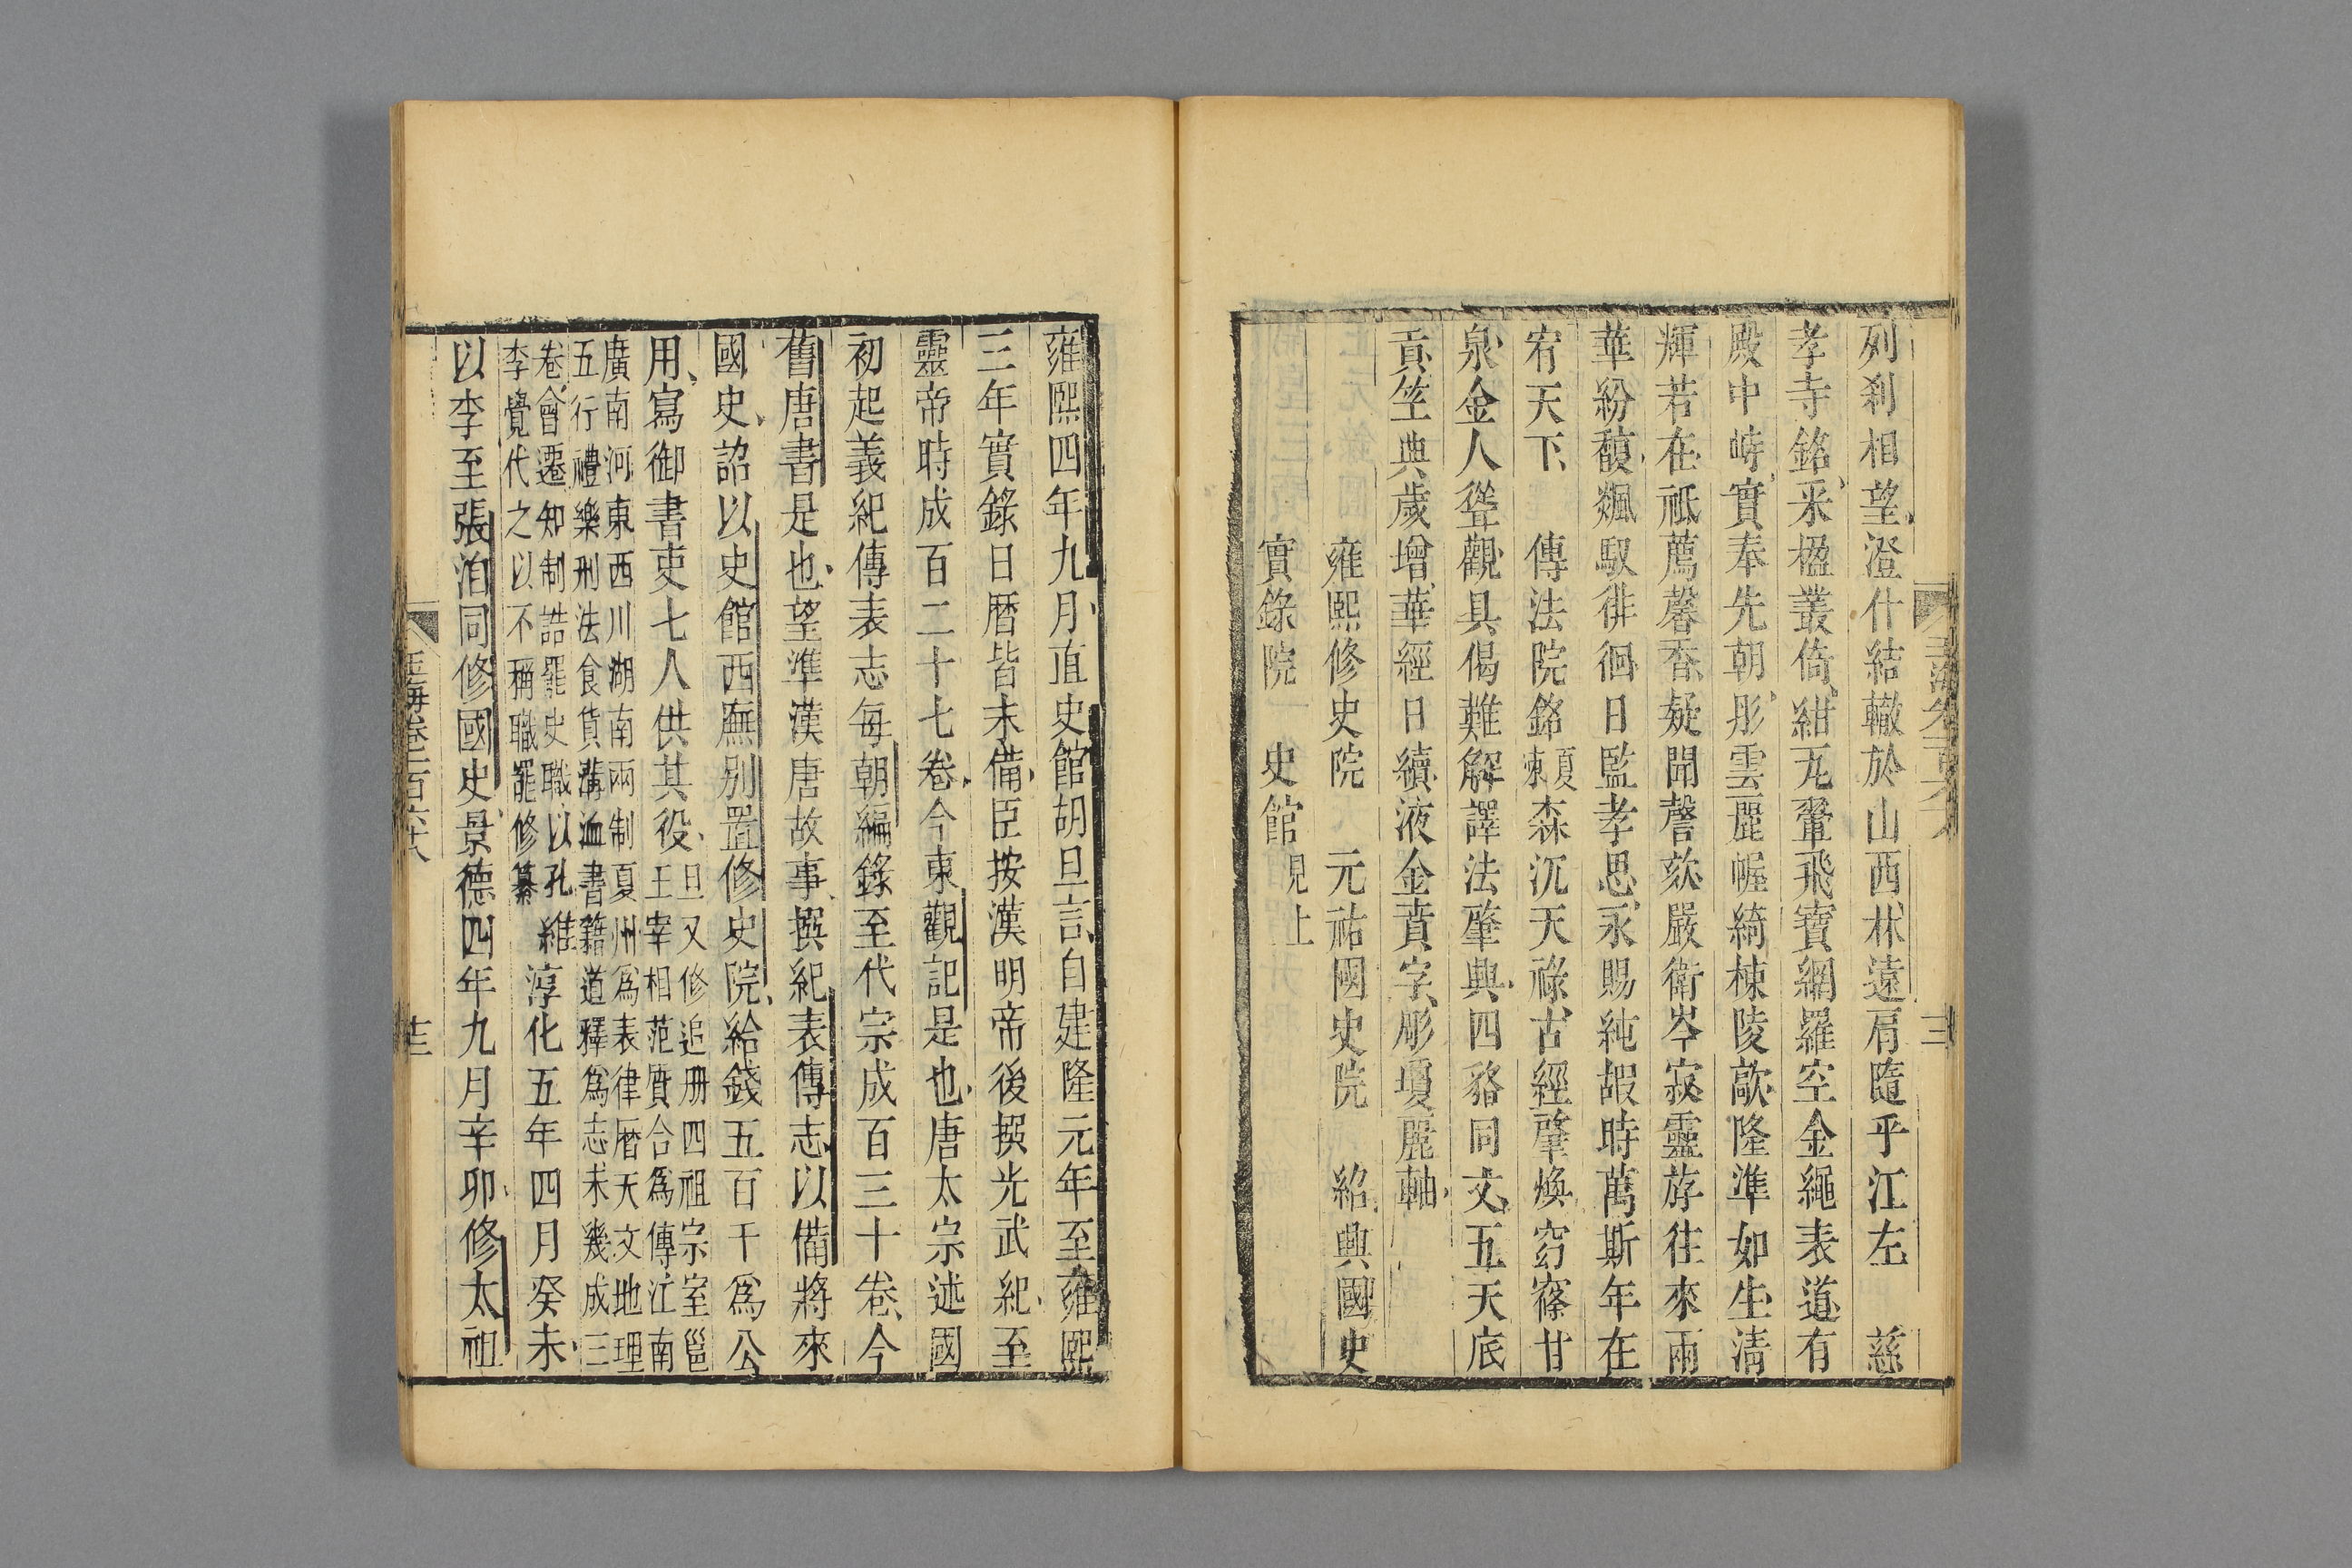 列刹相望澄什結轍於山西林遠肩隨乎江左　慈
孝寺銘采楹叢倚紺瓦翬飛寶網羅空金繩表道有
殿中峙實奉先朝彤雲麗幄綺棟陵歊隆準如生清
輝若在祗薦馨香疑聞謦欬嚴衛岑寂靈斿往來雨
華紛馥飊馭徘徊日監孝思永賜純嘏時萬斯年在
宥天下　傳法院銘夏竦森沉天祿古經肇煥窈窱甘
泉金人聳觀具偈難解譯法肇興四豁同文五天底
貢竺典歲增華經日續液金賁字彫瓊麗軸
雍熙修史院　元祐國史院　紹興國史
實錄院　史館見上
雍熙四年九月直史館胡旦言自建隆元年至雍熙
三年實錄日曆皆未備臣按漢明帝後撰光武紀至
靈帝時成百二十七卷今東觀記是也唐太宗述國
初起義紀傳表志每朝編錄至代宗成百三十卷今
舊唐書是也望準漢唐故事撰紀表傳志以備將來
國史詔以史館西廡别置修史院給錢五百千爲公
用寫御書吏七人供其役旦又修追册四祖宗室邕
王宰相范質合爲傳江南
廣南河東西川湖南兩制夏州爲表律曆天文地理
五行禮樂刑法食貨溝洫書籍道釋爲志未幾成三
卷會遷知制誥罷史職以孔維
李覺代之以不稱職罷修纂淳化五年四月癸未
以李至張洎同修國史景德四年九月辛卯修太祖
玉海卷一百六十八
十三